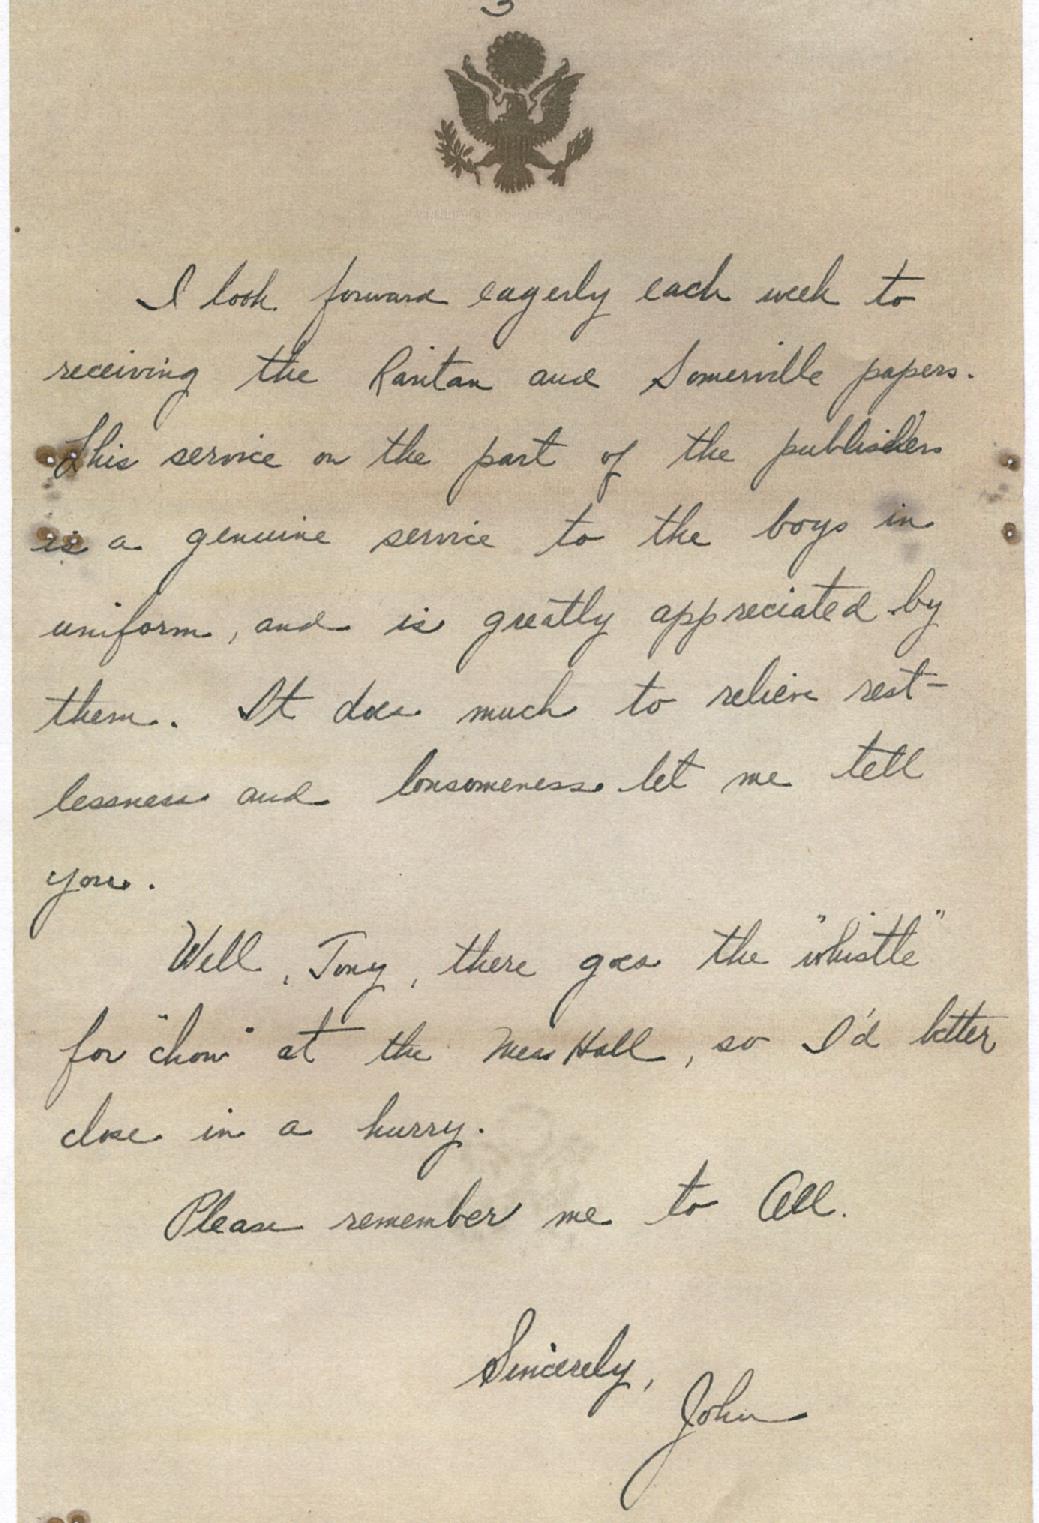 3
I look forward eagerly each week to
receiving the Raritan and Somerville papers.
This service on the part of the publishers
is a genuine service to the boys in
uniform, and is greatly appreciated by
them. It does much to relieve rest-
lessness and lonsomeness let me tell
you.
Well, Tony, there goes the "whistle"
for "chow" at the Mess Hall, so I'd better
close in a hurry.
Please remember me to All.
Sincerely,
John